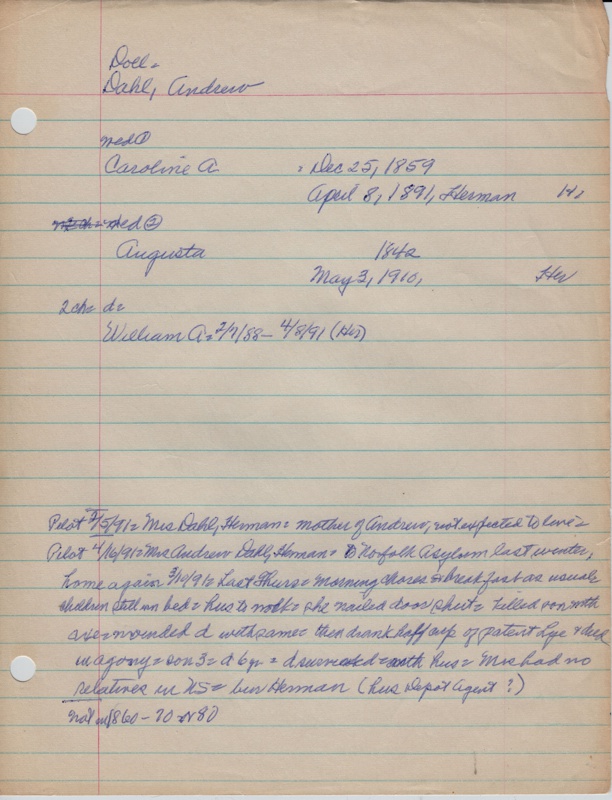 Doel=
Dahl, Andrew
wed ①
Caroline A = Dec 25, 1859
April 8, 1891, Herman H,
wed ②
Augusta 1842
May 3, 1910, Her
2 ch= d=
William A= 2/7/88 - 4/8/91 (Her)
Pilot /5/91= Mrs Dahl, Herman= mother of Andrew, not expected to live=
Pilot 4/16/91= Mrs Andrew Dahl, Herman= to Norfolk Asylum last winter,
home again 3/10/91= Last Thurs= morning chores & breakfast as usual=
children still in bed= hus to work= she nailed door shut= killed son with
axe= wounded d with same= then drank half cup of patent Lye & died
in agony= son 3= d 6 yr= d survived= with hus= Mrs had no
relatives in US= bur Herman (hus Depot Agent?)
not in 1860-70 or 80